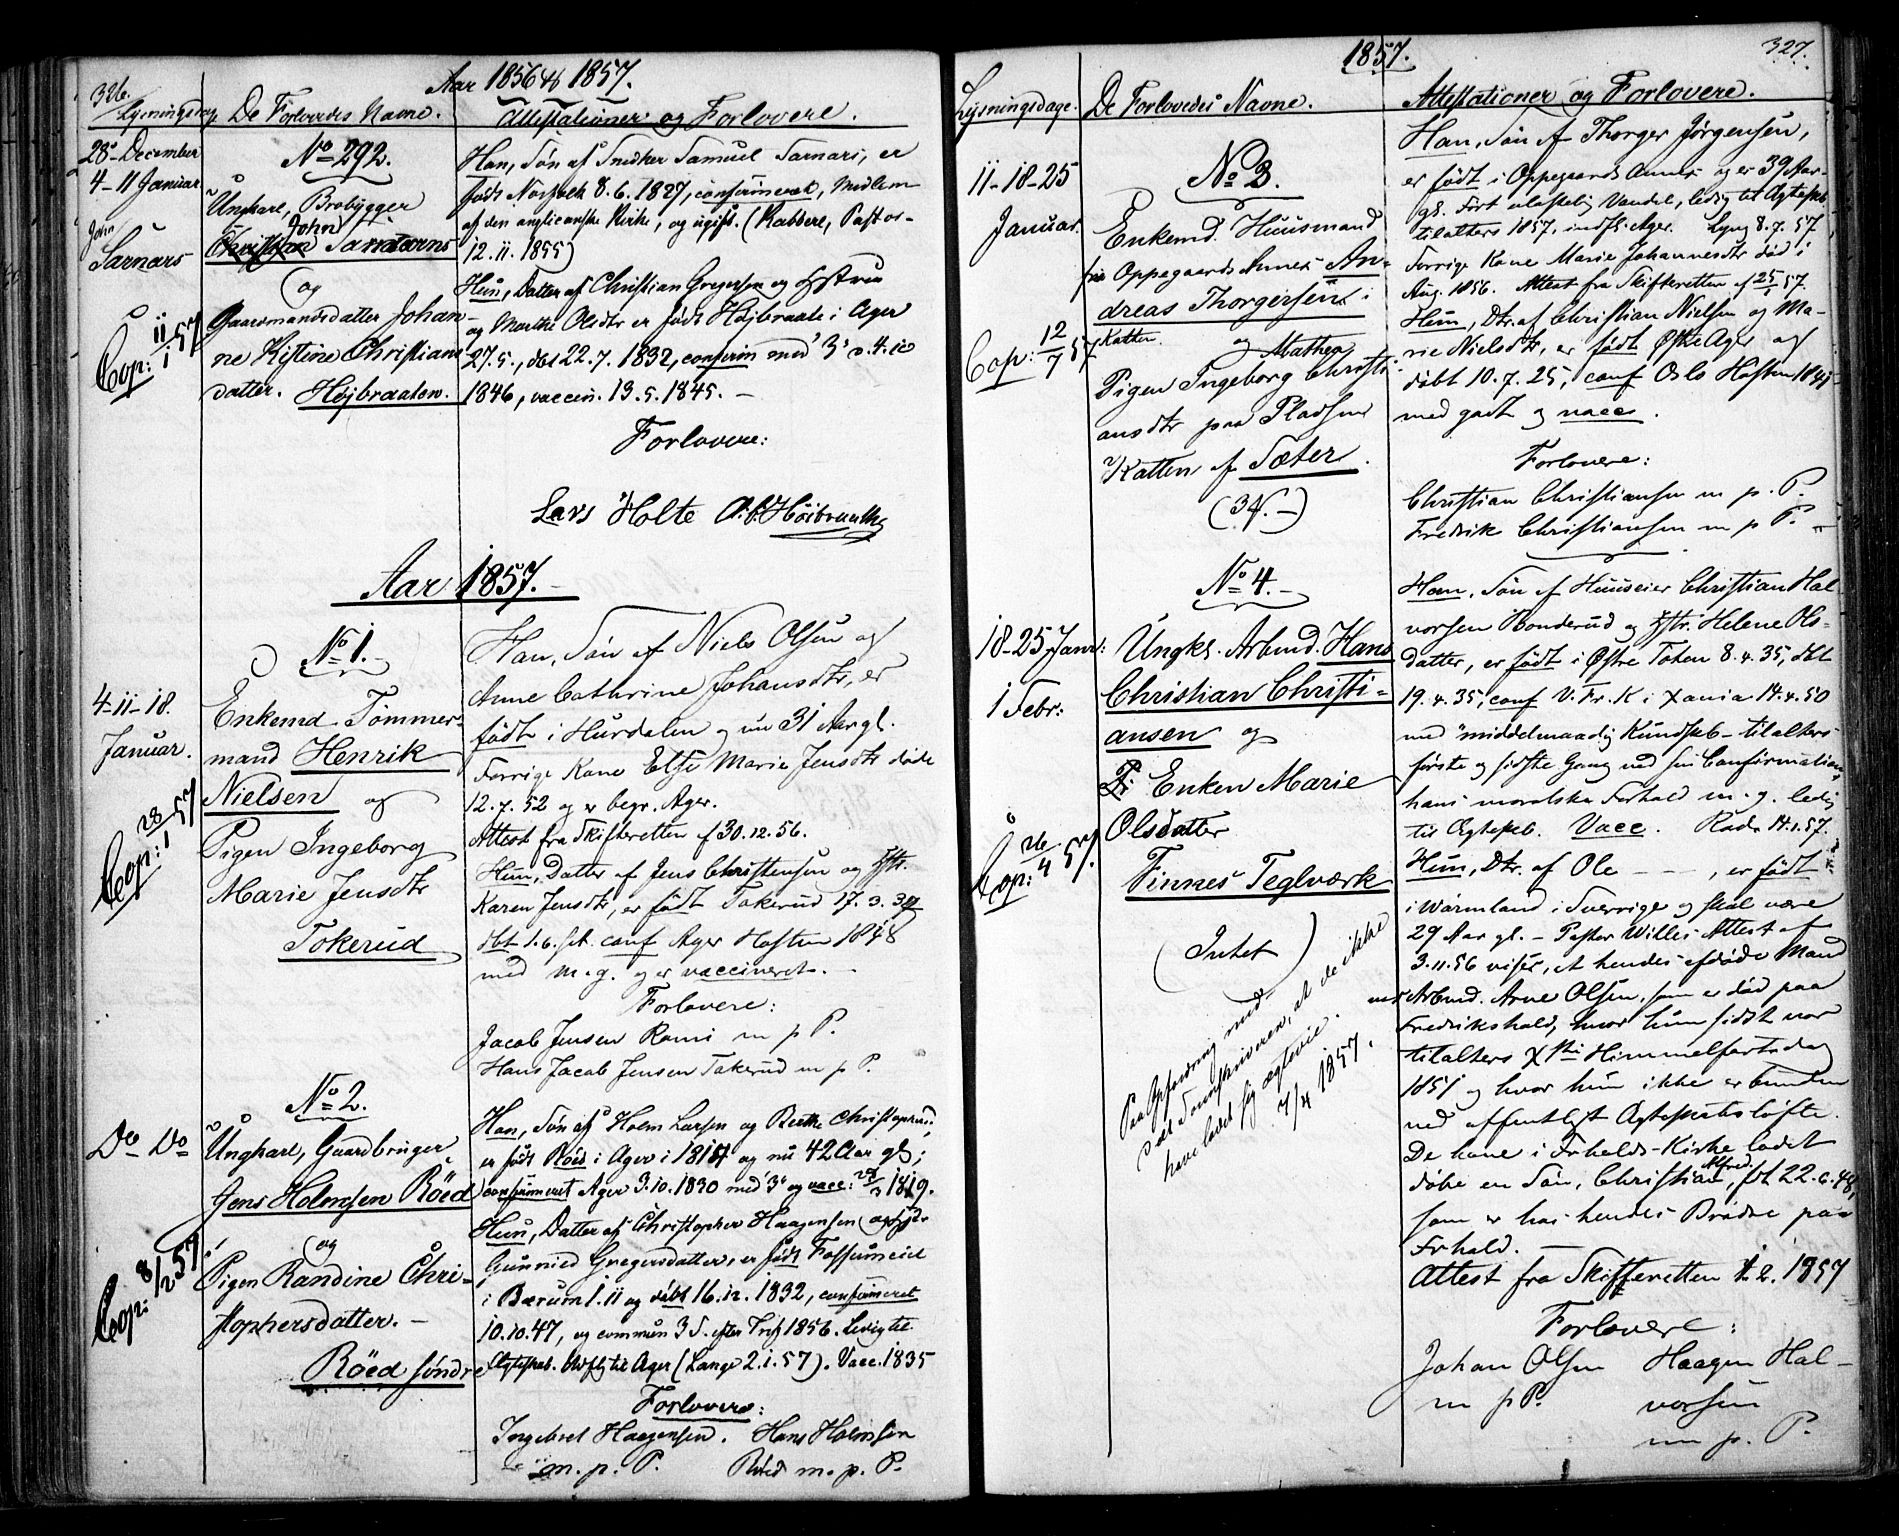 326.
Aar 1856 & 1857.
Lysningsdage De Forlovedes Navne. Attestationer og Forlovere.
28 December
4-11 Januar
John
Sarnars
Cop: 11/1 57
No 292.
Ungkarl, Brobygger
John
Christian Sarnars
og
Gaardmandsdatter Johan-
ne Kistine Christians
datter. Højbraaten.
Han, Søn af Snedker Samuel Sarnars, er
født Norfolk 8.6.1827, confirmeret, Medlem
af den anglicanske Kirke, og ugift. (Rabbere, Pastor-
12.11.1855)
Hun, Datter af Christian Gregersen og Hstru
og Marthe Olsdtr er født Højbraate i Ager
27.5., døbt 22.7.1832, confirm med 3 d. 4.10
1846, vaccin. 13.5.1845. –
Forlovere:
Lars Holte A.C. Høibraathe
Aar 1857.
4-11-18.
Januar.
Cop: 28/1 57
No 1.
Enkemd. Tømmer-
mand Henrik
Nielsen og
Pigen Ingeborg
Marie Jensdtr
Tokerud
Han, Søn af Niels Olsen og
Anne Cathrine Johansdtr, er
født i Hurdalen og nu 31 Aar gl.
Forrige Kone Else Marie Jensdtr døde
12.7.52 og er begr. Ager.
Attest fra Skifteretten af 30.12.56.
Hun, Datter af Jens Christensen og Hstr.
Karen Jensdtr, er født Tokerud 17.3.34
dbt 1.6. s.A. conf Ager Høsten 1848
med m.g. og er vaccineret. –
Forlovere:
Jacob Jensen Romi m p P.
Hans Jacob Jensen Tokerud m p P.
Do Do
Cop: 8/2 57
No 2.
Ungkarl, Gaardbruger
Jens Holmsen Röed
og
Pigen Randine Chri-
stophersdatter. –
Röed søndre
Han, Søn af Holm Larsen og Berthe Christophersd.,
er født Röed i Ager i 1815 og nu 42 Aar gl;
confirmeret Ager 3.10.1830 med 3 og vacc: /3 1819.
Hun, Datter af Christopher Haagensen og Hstr
Gunnied Gregersdatter, er født Fossumeie
i Bærum 1.11 og døbt 16.12.1832, confirmeret
10.10.47, og commun 3 S. efter Trif 1856. Ledig til
Ægteskab. Udflt til Ager (Lange 2.1.57). Vacc. 1835
Forlovere:
Ingebret Haagensen. Hans Holmsen
m. p. P. Röed m. p. P.
1857.
327.
Lysningsdage. De Forlovedes Navne. Attestationer og Forlovere.
11-18-25
Januar.
Cop: 12/7 57
No 3.
Enkemd. Huusmand
fra Oppegaards Annex An-
dreas Thorgersen i
Katten. og
Mathea
Pigen Ingeborg Christi-
ansdtr paa Pladsen
Katten af Sæter.
(34. –)
Han, Søn af Thorger Jörgensen,
er født i Oppegaards Annex og er 39 Aar
gl. Ført ulastelig Vandel, ledig til Ægteskb,
tilalters 1857. indfl. Ager. Lyng 8.7.57
Forrige Kone Marie Johannesdtr død i
Aug. 1856. Attest fra Skifteretten af 25/1 57.
Hun, Dtr. af Christian Nielsen og Ma-
rie Nielsdtr, er født Østre Ager og
døbt 10.7.25, conf Oslo Høsten 1841
med godt og vacc.
Forlovere:
Christian Christiansen m p. P.
Fredrik Christiansen m p P.
18-25 Janr:
1 Febr:
Cop: 26/4 57.
No 4.
Ungkl. Arbmd. Hans
Christian Christi-
ansen og
Enken Marie
Olsdatter
Finnes Teglværk
(Intet)
Paa Opfordring med-
delt Sognepresten, at de ikke
have ladet sig ægtevie.
7/4 1857.
Han, Søn af Huuseier Christian Hal
vorsen Bonderud og Hstr. Helene Ols-
datter, er født i Østre Toten 8.4.35, dbt
19.4.35, conf V. Fr. K i Xania 14.4.50
med "middelmaadig Kundskb – tilalters
første og sidste Gang ved sin Confirmation,
hans moralske Forhold m. g. ledig
til Ægteskb. Vacc. Rode 14.1.57.
Hun, Dtr. af Ole – – , er født
i Wärmland i Sverrige og skal være
29 Aar gl. – Pastor Willes Attest af
3.11.56 viser, at hendes afdøde Mand
var Arbmd. Arne Olsen, som er død paa
Fredrikshald, hvor hun sidst var
tilalters Xsti Himmelfartsdag
1851 og hvor hun ikke er bunden
ved offentligt Ægteskabsløfte.
De have i Frhalds-Kirke ladet
døbe en Søn, Christian Alfred, fdt 22.6.48,
som er hos hendes Brødre paa
Frhald. –
Attest fra Skifteretten 1.2.1857
Forlovere:
Johan Olsen Haagen Hal-
m p P. vorsen
m p. P.